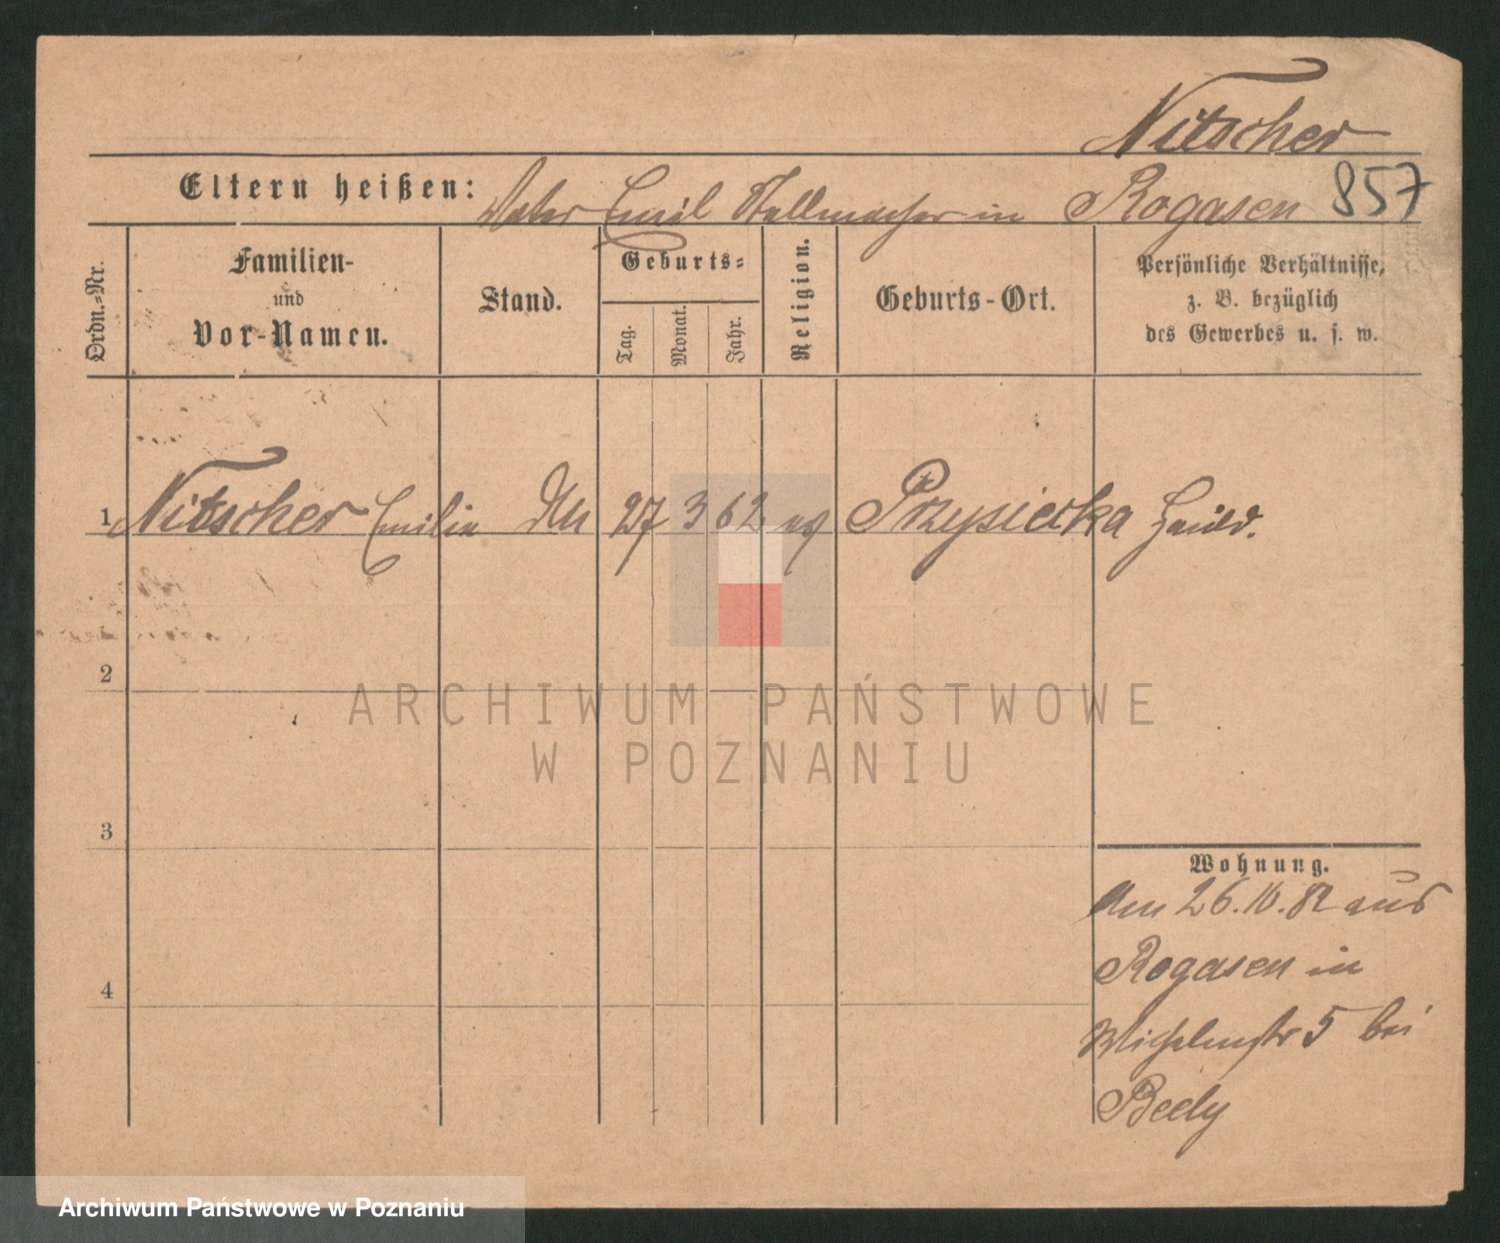 Nitscher
Eltern heißen: Vater Emil Stellmacher in Rogasen 857
Ordn.=Nr.
Familien-
und
Vor-Namen.
Stand.
Geburts=
Tag.
Monat.
Jahr.
Religion.
Geburts-Ort.
Persönliche Verhältnisse,
z. B. bezüglich
des Gewerbes u. s. w.
1 Nitscher Emilie 27 3 62 ev Przysiecka
2
3
4
Wohnung.
Am 26.10.82 aus
Rogasen in
Wilhelmstr 5 bei
Beely
ARCHIWUM PAŃSTWOWE
W POZNANIU
Archiwum Państwowe w Poznaniu